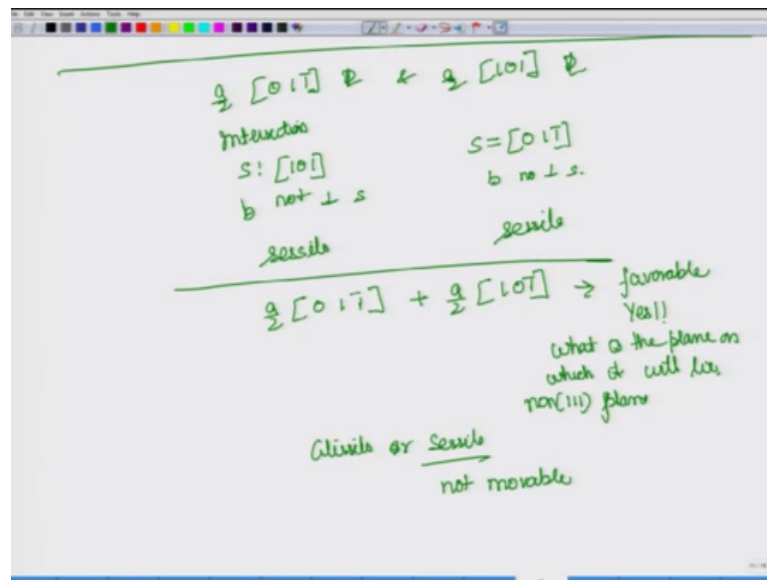 a/2 [0 1 1̄] & a/2 [101]
Interaction
S: [101]
b not ⊥ s
sessile
S = [0 1 1̄]
b no ⊥ s.
sessile
a/2 [0 1 1̄] + a/2 [1 0 1̄] → favorable
Yes!!
what is the plane on
which it will lie,
non(111) plane
Glissile or Sessile
not movable